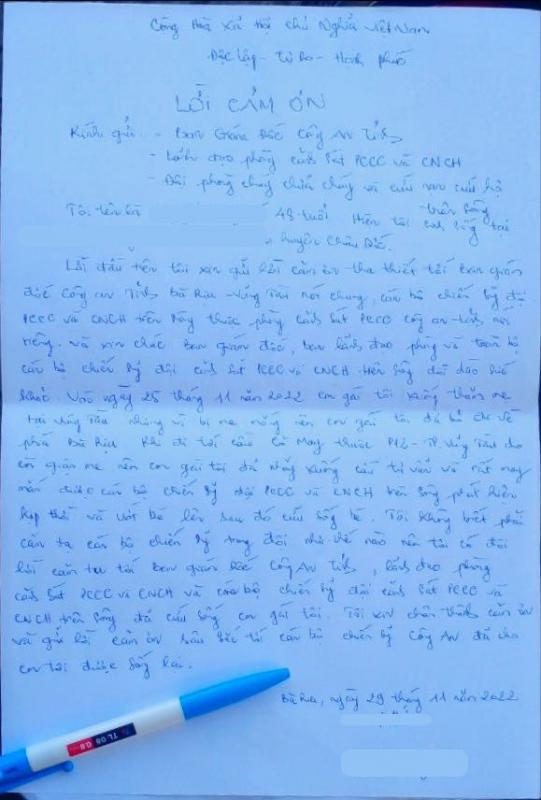 Cộng Hòa Xã Hội Chủ Nghĩa Việt Nam
Độc Lập - Tự Do - Hạnh phúc
LỜI CẢM ƠN
Kính gửi: - Ban Giám Đốc Công An Tỉnh
- Lãnh đạo phòng Cảnh Sát PCCC và CNCH
- Đội phòng cháy chữa cháy và cứu nạn cứu hộ
trên Sông
Tôi tên là 48 tuổi Hiện tôi sinh sống tại
huyện Châu Đức.
Lời đầu tiên tôi xin gửi lời cảm ơn tha thiết tới Ban giám
đốc Công an Tỉnh Bà Rịa - Vũng Tàu nói chung, cán bộ chiến sỹ đội
PCCC và CNCH trên Sông thuộc phòng Cảnh sát PCCC công an tỉnh nói
riêng. và xin chúc Ban giám đốc, ban lãnh đạo phòng và toàn bộ
cán bộ chiến sỹ đội cảnh sát PCCC và CNCH trên Sông dồi dào sức
khỏe. Vào ngày 25 tháng 11 năm 2022 con gái tôi xuống thăm mẹ
tại Vũng Tàu nhưng vì bị mẹ mắng nên con gái tôi đã bỏ đi về
phía Bà Rịa khi đi tới cầu Cỏ May thuộc P12 - TP. Vũng Tàu do
còn giận mẹ nên con gái tôi đã nhảy xuống cầu tự vẫn và rất may
mắn được cán bộ chiến sỹ đội PCCC và CNCH trên Sông phát hiện
kịp thời và vớt bé lên sau đó cứu sống bé. Tôi không biết phải
cảm tạ cán bộ chiến sỹ trong đội như thế nào nên tôi có đôi
lời cảm tạ tới Ban giám đốc Công An Tỉnh, lãnh đạo phòng
cảnh sát PCCC và CNCH và cán bộ chiến sỹ đội cảnh sát PCCC và
CNCH trên Sông đã cứu sống con gái tôi. Tôi xin chân thành cảm ơn
và gửi lời cảm ơn sâu sắc tới cán bộ chiến sỹ Công An đã cho
con tôi được sống lại.
Bà Rịa, ngày 29 tháng 11 năm 2022
TL 08 0.8